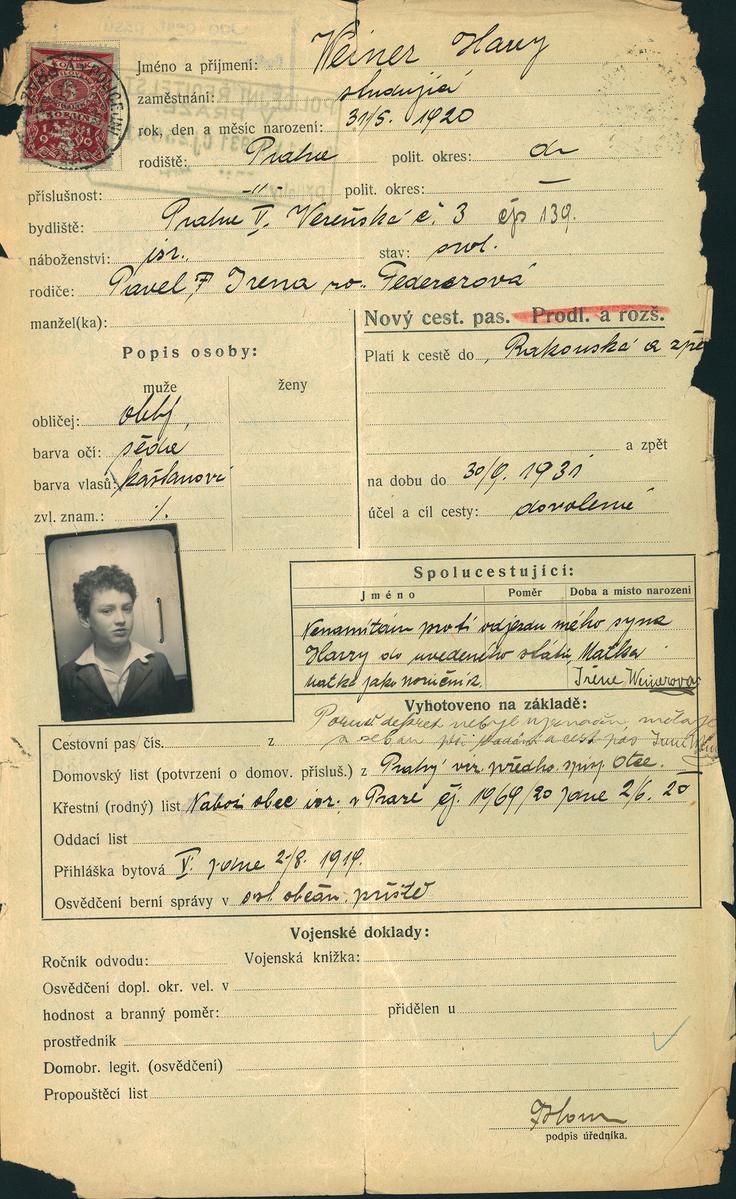 Jméno a příjmení: Weiner Harry
zaměstnání: studující
rok, den a měsíc narození: 31/5. 1920
rodiště: Praha polit. okres: dtto
příslušnost: -"- polit. okres: —
bydliště: Praha V. Vězeňská č. 3 čp 139.
náboženství: isr. stav: svob.
rodiče: Pavel, Irena roz. Federerová
manžel(ka):
Nový cest. pas. Prodl. a rozš.
Popis osoby:
Platí k cestě do Rakouska a zpě
muže ženy
obličej: obl.
barva očí: šedé
a zpět
barva vlasů: kaštanové
na dobu do 30/9. 1931
zvl. znam.: %.
účel a cíl cesty: dovolená
Spolucestující:
Jméno Poměr Doba a místo narození
Nenamítám proti odjezdu mého syna
Harry do uvedeného státu, Matka
matka jako poručník. Irene Weinerova
Vyhotoveno na základě:
nebyl
Cestovní pas čís. z a cest pas
Domovský list (potvrzení o domov. přísluš.) z Prahy otce.
Křestní (rodný) list Nábož. obec isr. v Praze čj. 1969/20 2/6. 20
Oddací list
Přihláška bytová V. 2/8. 1919.
Osvědčení berní správy v
Vojenské doklady:
Ročník odvodu: Vojenská knížka:
Osvědčení dopl. okr. vel. v
hodnost a branný poměr: přidělen u
prostředník
Domobr. legit. (osvědčení)
Propouštěcí list
podpis úředníka.